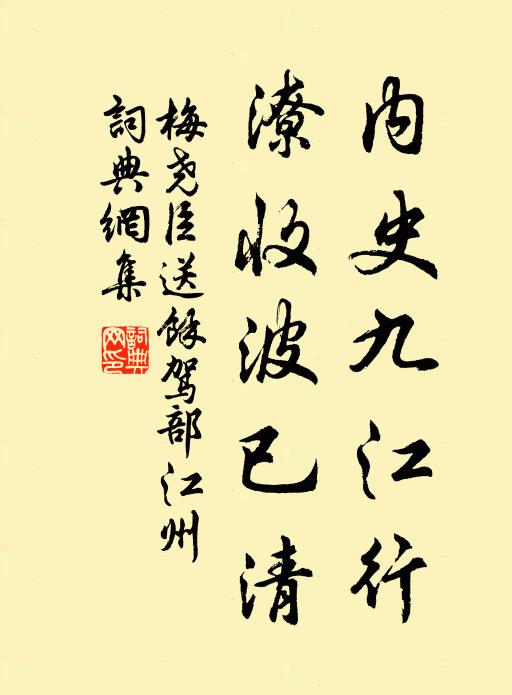 内史九江行
潦收波已清
梅堯臣送餘駕部江州
詞典網集
詞典網印